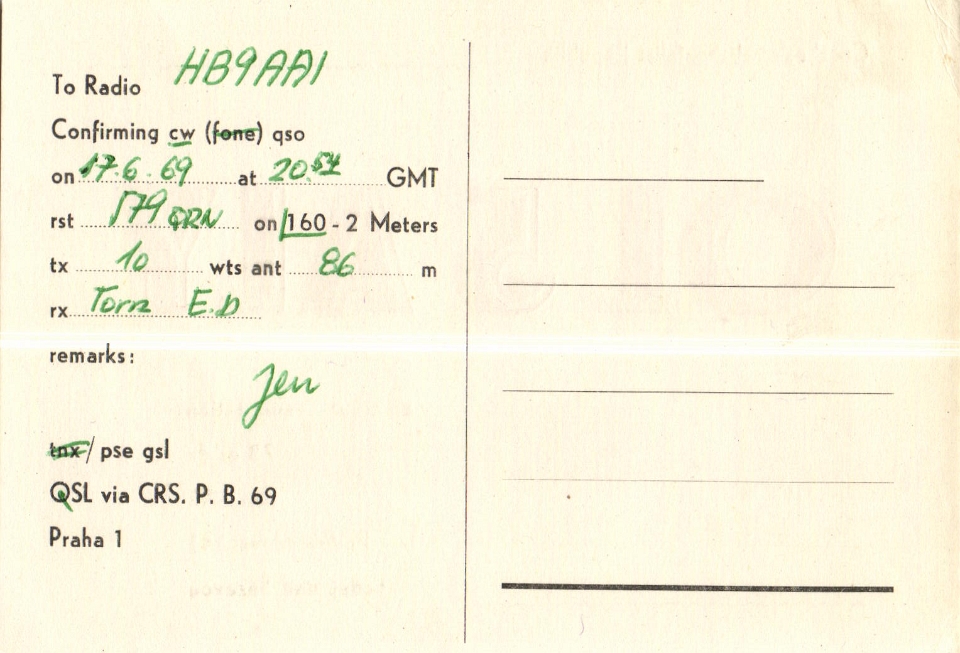 To Radio HB9AAI
Confirming cw (fone) qso
on 17.6.69 at 20.54 GMT
rst 579 QRN on 160 - 2 Meters
tx 10 wts ant 86 m
rx Torn E.D
remarks:
Jen
tnx / pse gsl
QSL via CRS. P. B. 69
Praha 1